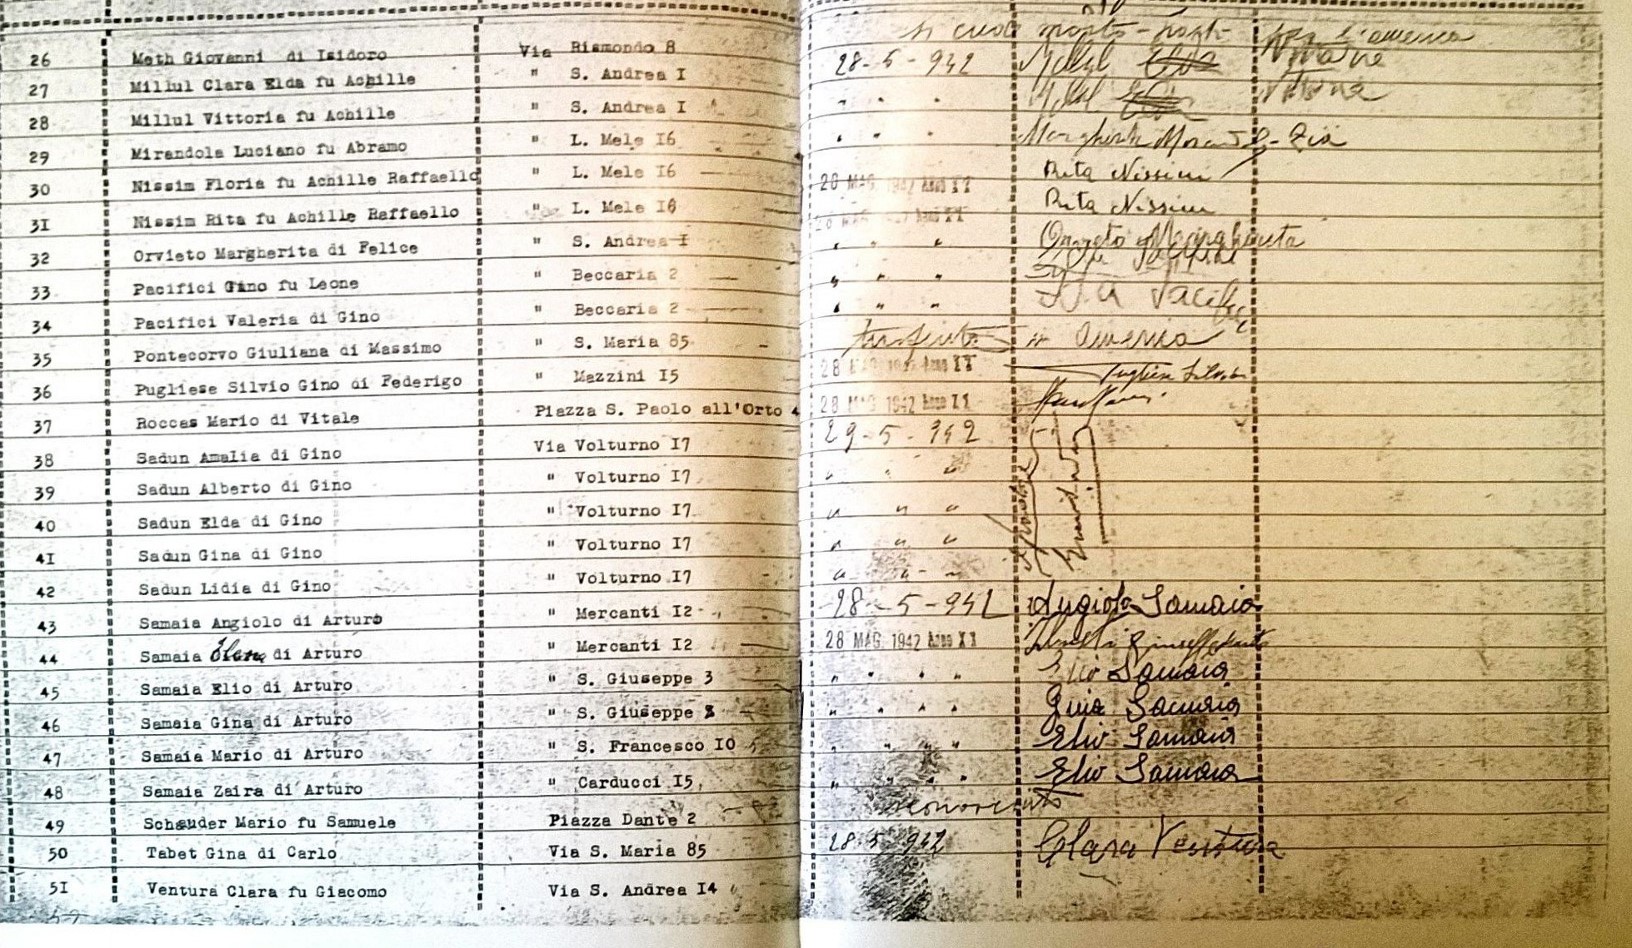 26 Meth Giovanni di Isidoro Via Rismondo 8
27 Millul Clara Elda fu Achille " S. Andrea I 28-5-942
28 Millul Vittoria fu Achille " S. Andrea I " " "
29 Mirandola Luciano fu Abramo " L. Mele I6 " " "
30 Nissim Floria fu Achille Raffaello " L. Mele I6 28 MAG. 1942 Anno XX Rita Nissim
31 Nissim Rita fu Achille Raffaello " L. Mele I6 28 MAG. 1942 Anno XX Rita Nissim
32 Orvieto Margherita di Felice " S. Andrea I " " " Orvieto Margherita
33 Pacifici Gino fu Leone " Beccaria 2 " " "
34 Pacifici Valeria di Gino " Beccaria 2 " " " Pacifici
35 Pontecorvo Giuliana di Massimo " S. Maria 85 trasferita in America
36 Pugliese Silvio Gino di Federigo " Mazzini I5 28 MAG. 1942 Anno XX Pugliese Silvio
37 Roccas Mario di Vitale Piazza S. Paolo all'Orto 4 28 MAG. 1942 Anno XX
38 Sadun Amalia di Gino Via Volturno I7 29-5-942
39 Sadun Alberto di Gino " Volturno I7 " " "
40 Sadun Elda di Gino " Volturno I7 " " "
41 Sadun Gina di Gino " Volturno I7 " " "
42 Sadun Lidia di Gino " Volturno I7 " " "
43 Samaia Angiolo di Arturo " Mercanti I2 28-5-942 Angiolo Samaia
44 Samaia Elena di Arturo " Mercanti I2 28 MAG. 1942 Anno XX
45 Samaia Elio di Arturo " S. Giuseppe 3 " " " " Elio Samaia
46 Samaia Gina di Arturo " S. Giuseppe 3 " " " " Gina Samaia
47 Samaia Mario di Arturo " S. Francesco IO " " " Elio Samaia
48 Samaia Zaira di Arturo " Carducci I5 " " " " Elio Samaia
49 Schauder Mario fu Samuele Piazza Dante 2 sconosciuto
50 Tabet Gina di Carlo Via S. Maria 85 28-5-942 Clara Ventura
5I Ventura Clara fu Giacomo Via S. Andrea I4